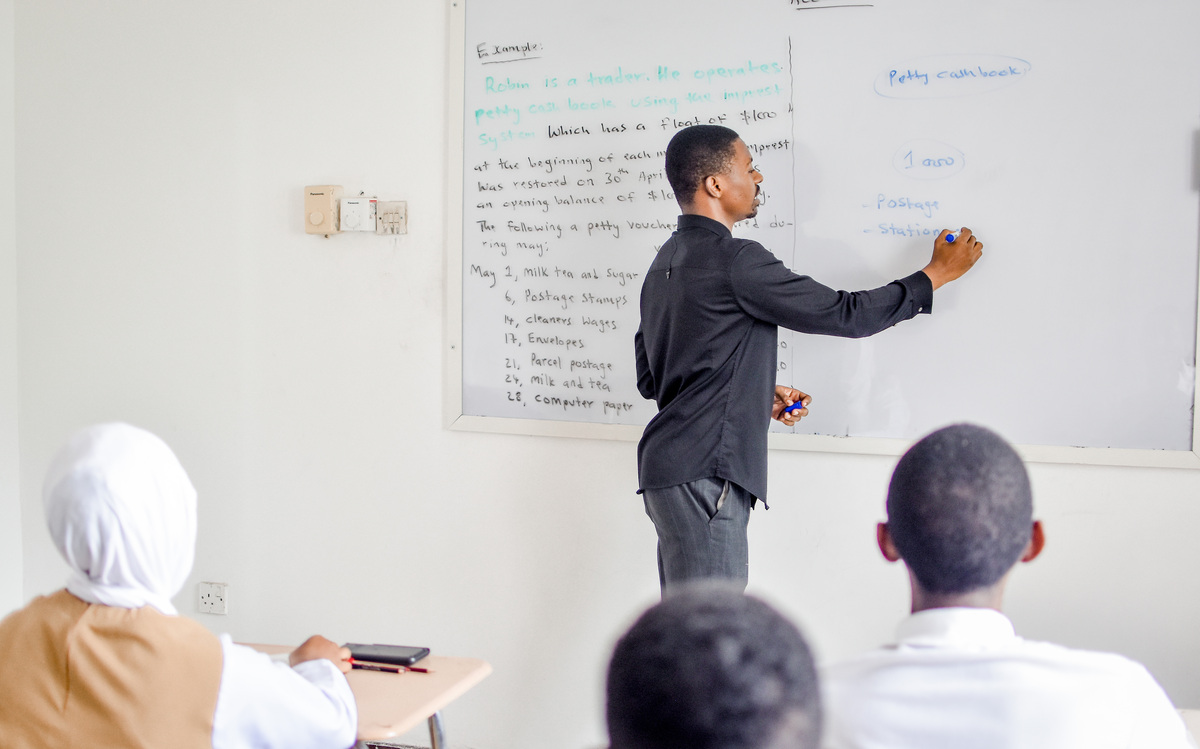 Example:
Robin is a trader. He operates
petty cash book using the imprest
system which has a float of $100
at the beginning of each imprest
was restored on 30th Apri
an opening balance of
The following a petty du-
ring may:
May 1, Milk tea and Sugar
6, Postage Stamps
14, cleaners Wages
17, Envelopes
21, Parcel postage
24, Milk and tea
28, computer paper
Petty cash book
- Postage
- Station